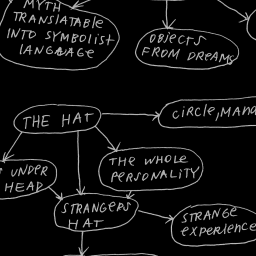 MYTH
TRANSLATABLE
INTO SYMBOLIST
LANGUAGE
OBJECTS
FROM DREAMS
THE HAT
CIRCLE, MAND
UNDER
HEAD
THE WHOLE
PERSONALITY
STRANGERS
HAT
STRANGE
EXPERIENCE